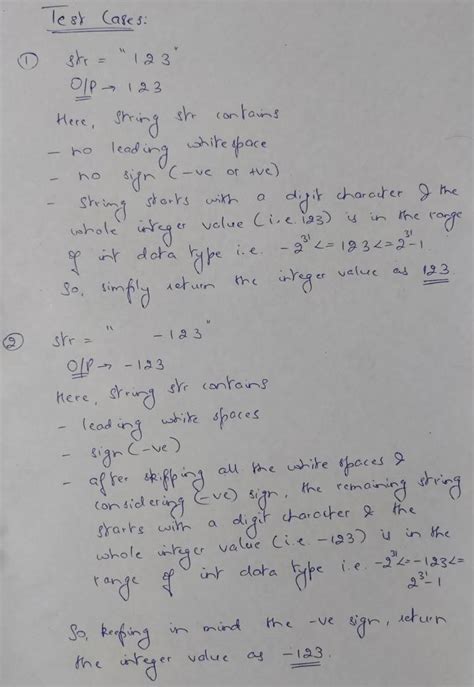 Test Cases:
① str = "123"
O/P → 123
Here, string str contains
- no leading whitespace
- no sign (-ve or +ve)
- string starts with a digit character & the
whole integer value (i.e. 123) is in the range
of int data type i.e. -2³¹<=123<=2³¹-1.
So, simply return the integer value as 123.
② str = "     -123"
O/P → -123
Here, string str contains
- leading white spaces
- sign (-ve)
- after skipping all the white spaces &
considering (-ve) sign, the remaining string
starts with a digit character & the
whole integer value (i.e. -123) is in the
range of int data type i.e. -2³¹<=-123<=
2³¹-1
So, keeping in mind the -ve sign, return
the integer value as -123.